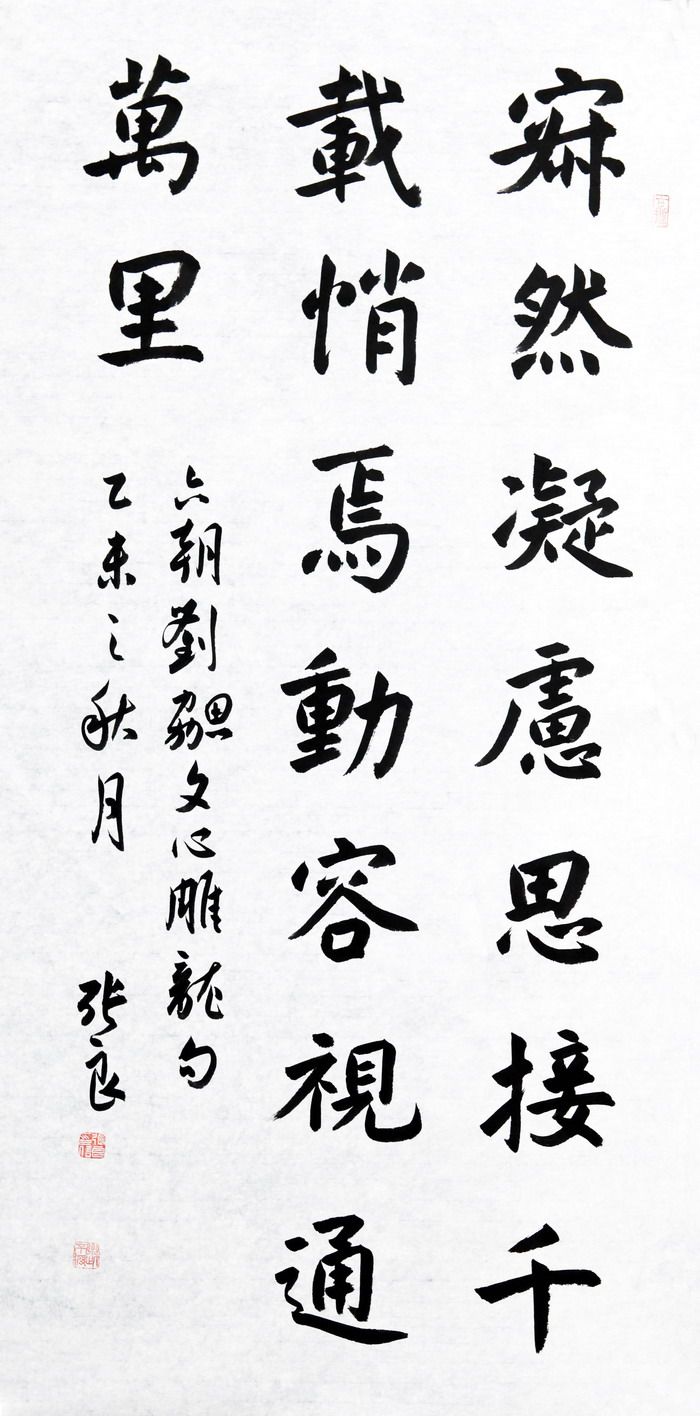 寂然凝慮思接千
載悄焉動容視通
萬里
六朝劉勰文心雕龍句
乙未之秋月 張良